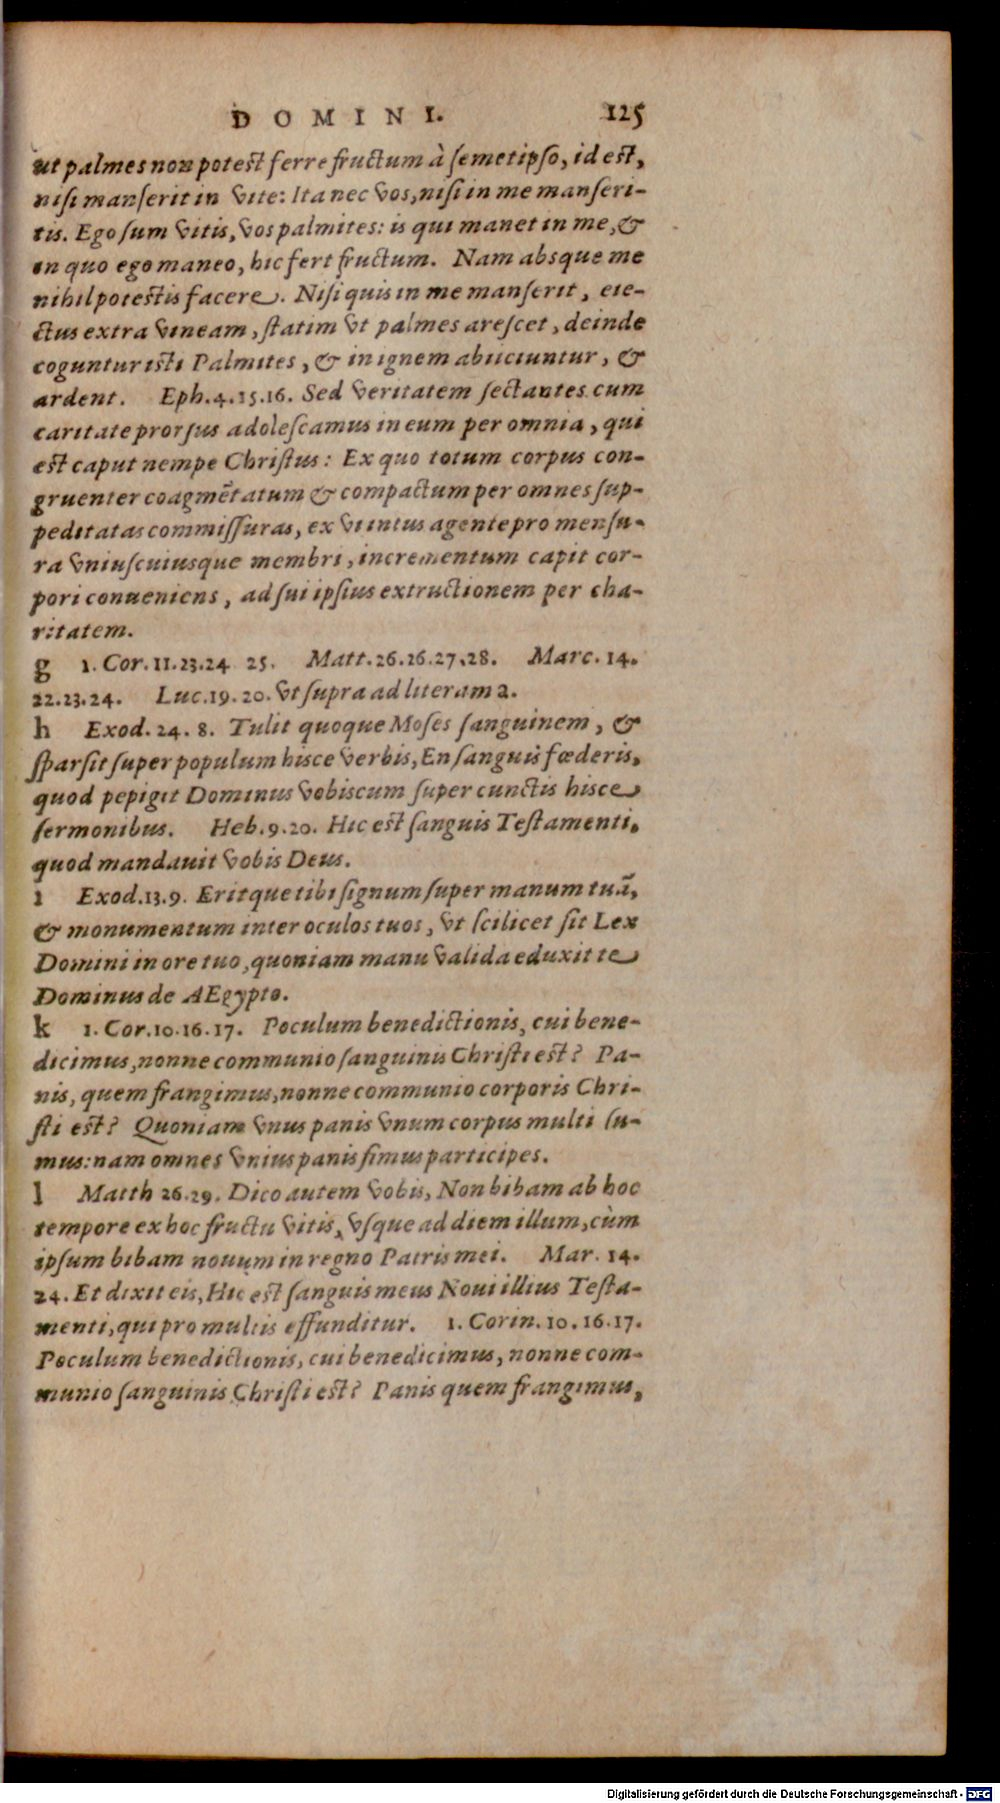 DOMINI. 125
ut palmes non potest ferre fructum à semetipso, id est,
nisi manserit in vite: Ita nec vos, nisi in me manseri-
tis. Ego sum vitis, vos palmites: is qui manet in me, &
in quo ego maneo, hic fert fructum. Nam absque me
nihil potestis facere. Nisi quis in me manserit, eie-
ctus extra vineam, statim vt palmes arescet, deinde
coguntur isti Palmites, & in ignem abiiciuntur, &
ardent. Eph. 4. 15. 16. Sed veritatem sectantes cum
caritate prorsus adolescamus in eum per omnia, qui
est caput nempe Christus: Ex quo totum corpus con-
gruenter coagmētatum & compactum per omnes sup-
peditatas commissuras, ex vi intus agente pro mensu-
ra vniuscuiusque membri, incrementum capit cor-
pori conueniens, ad sui ipsius extructionem per cha-
ritatem.
g 1. Cor. 11. 23. 24 25. Matt. 26. 26. 27. 28. Marc. 14.
22. 23. 24. Luc. 19. 20. vt supra ad literam a.
h Exod. 24. 8. Tulit quoque Moses sanguinem, &
sparsit super populum hisce verbis, En sanguis fœderis,
quod pepigit Dominus vobiscum super cunctis hisce
sermonibus. Heb. 9. 20. Hic est sanguis Testamenti,
quod mandauit vobis Deus.
i Exod. 13. 9. Eritque tibi signum super manum tuā,
& monumentum inter oculos tuos, vt scilicet sit Lex
Domini in ore tuo, quoniam manu valida eduxit te
Dominus de AEgypto.
k 1. Cor. 10. 16. 17. Poculum benedictionis, cui bene-
dicimus, nonne communio sanguinis Christi est? Pa-
nis, quem frangimus, nonne communio corporis Chri-
sti est? Quoniam vnus panis vnum corpus multi su-
mus: nam omnes vnius panis simus participes.
l Matth 26. 29. Dico autem vobis, Non bibam ab hoc
tempore ex hoc fructu vitis, vsque ad diem illum, cùm
ipsum bibam nouum in regno Patris mei. Mar. 14.
24. Et dixit eis, Hic est sanguis meus Noui illius Testa-
menti, qui pro multis effunditur. 1. Corin. 10. 16. 17.
Poculum benedictionis, cui benedicimus, nonne com-
munio sanguinis Christi est? Panis quem frangimus,
Digitalisierung gefördert durch die Deutsche Forschungsgemeinschaft - DFG